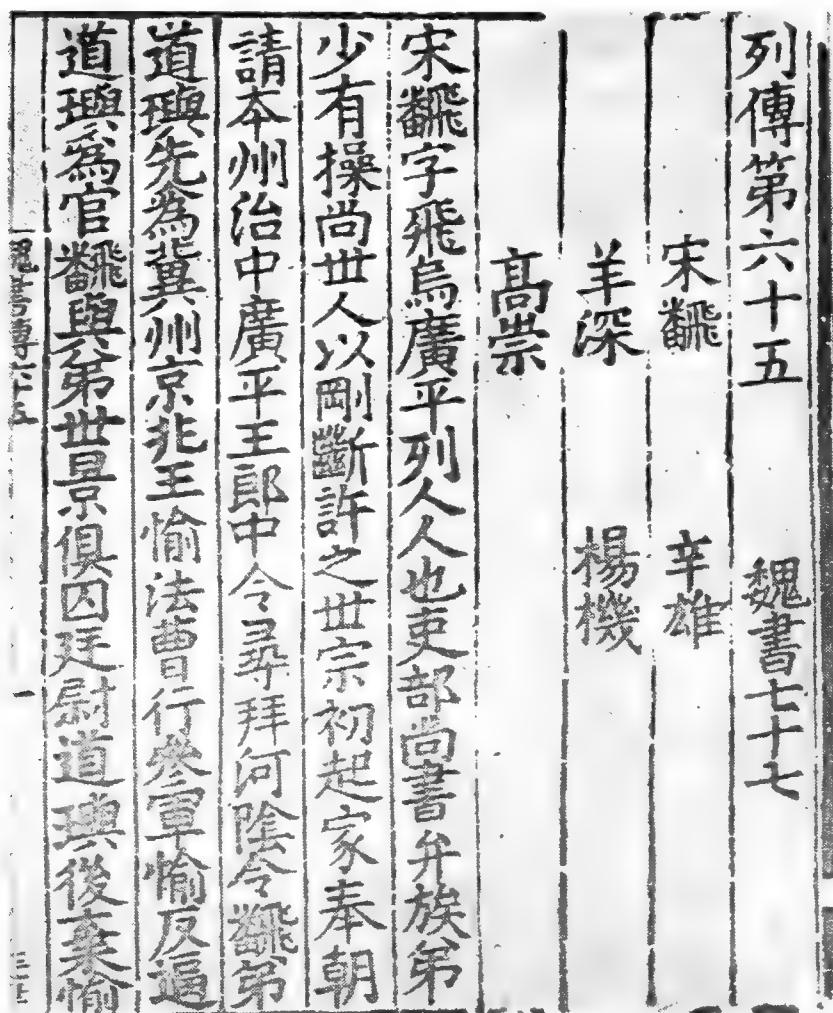 列傳第六十五 魏書七十七
宋飜 辛雄
羊深 楊機
髙崇
宋飜字飛烏廣平列人人也吏部尚書弁族弟
少有操尚世人以剛斷許之世宗初起家奉朝
請本州治中廣平王郎中令尋拜河陰令飜弟
道璵先為冀州京兆王愉法曹行參軍愉反逼
道璵為官飜與弟世景俱囚廷尉道璵後棄愉
魏書傳六十五 一